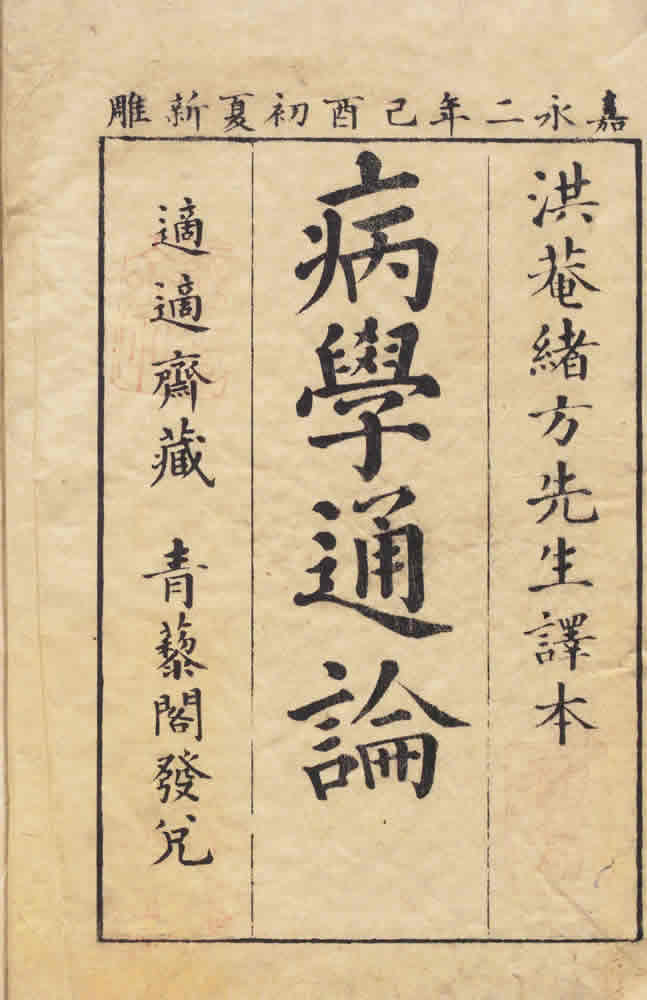 嘉永二年己酉初夏新雕
洪菴緒方先生譯本
病學通論
適適齋藏　青藜閣發兌